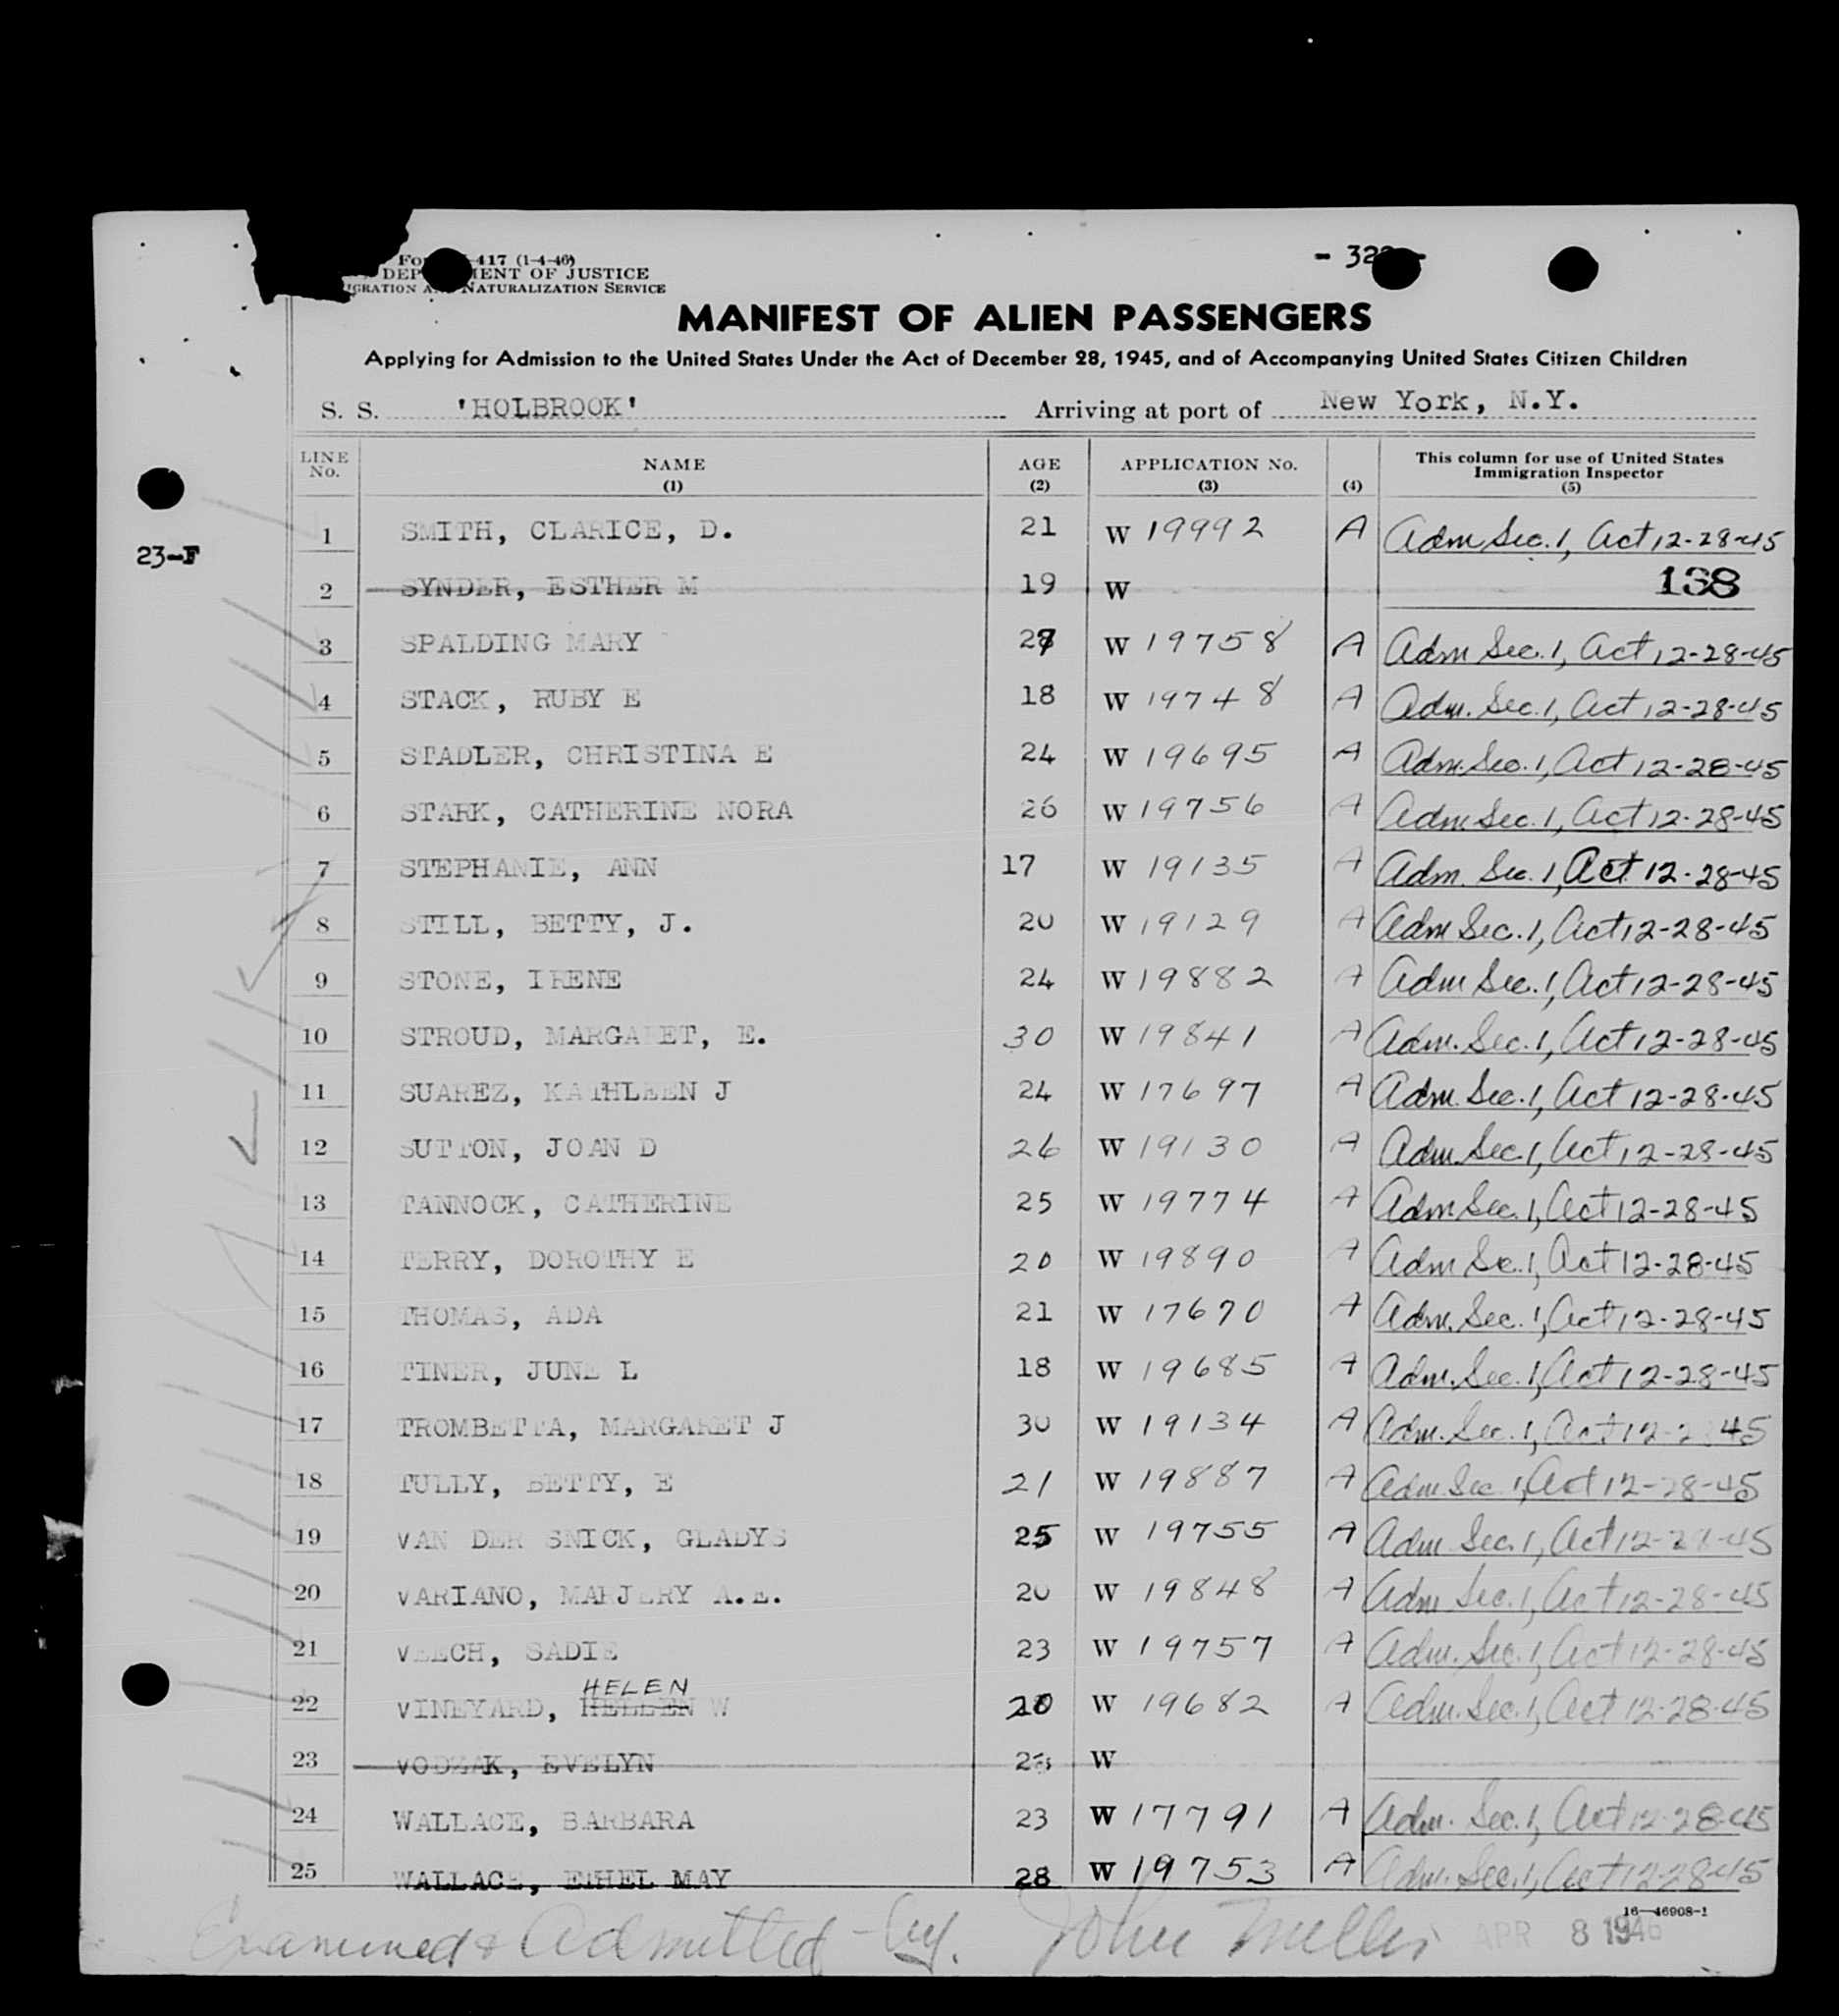 417 (1-4-46)
- 32
DEP MENT OF JUSTICE
IGRATION A NATURALIZATION SERVICE
MANIFEST OF ALIEN PASSENGERS
Applying for Admission to the United States Under the Act of December 28, 1945, and of Accompanying United States Citizen Children
S. S. 'HOLBROOK' Arriving at port of New York, N.Y.
LINE No. NAME (1) AGE (2) APPLICATION No. (3) (4) This column for use of United States Immigration Inspector (5)
1 SMITH, CLARICE, D. 21 W 19992 A Adm Sec. 1, Act 12-28-45
23-F
2 SYNDER, ESTHER M 19 W 138
3 SPALDING MARY 27 W 19758 A Adm Sec. 1, Act 12-28-45
4 STACK, RUBY E 18 W 19748 A Adm. Sec. 1, Act 12-28-45
5 STADLER, CHRISTINA E 24 W 19695 A Adm. Sec. 1, Act 12-28-45
6 STARK, CATHERINE NORA 26 W 19756 A Adm Sec. 1, Act 12-28-45
7 STEPHANIE, ANN 17 W 19135 A Adm. Sec. 1, Act 12-28-45
8 STILL, BETTY, J. 20 W 19129 A Adm Sec. 1, Act 12-28-45
9 STONE, IRENE 24 W 19882 A Adm Sec. 1, Act 12-28-45
10 STROUD, MARGARET, E. 30 W 19841 A Adm. Sec. 1, Act 12-28-45
11 SUAREZ, KATHLEEN J 24 W 17697 A Adm. Sec. 1, Act 12-28-45
12 SUTTON, JOAN D 26 W 19130 A Adm. Sec. 1, Act 12-28-45
13 TANNOCK, CATHERINE 25 W 19774 A Adm Sec. 1, Act 12-28-45
14 TERRY, DOROTHY E 20 W 19890 A Adm Sec. 1, Act 12-28-45
15 THOMAS, ADA 21 W 17670 A Adm. Sec. 1, Act 12-28-45
16 TINER, JUNE L 18 W 19685 A Adm. Sec. 1, Act 12-28-45
17 TROMBETTA, MARGARET J 30 W 19134 A Adm. Sec. 1, Act 12-2 45
18 TULLY, BETTY, E 21 W 19887 A Adm Sec 1, Act 12-28-45
19 VAN DER SNICK, GLADYS 25 W 19755 A Adm Sec. 1, Act 12-28-45
20 VARIANO, MARJERY A.E. 20 W 19848 A Adm Sec. 1, Act 12-28-45
21 VEECH, SADIE 23 W 19757 A Adm. Sec. 1, Act 12-28-45
HELEN
22 VINEYARD, HELLEN W 20 W 19682 A Adm. Sec. 1, Act 12-28-45
23 VODZAK, EVELYN W
24 WALLACE, BARBARA 23 W 17791 A Adm. Sec. 1, Act 12-28-45
25 WALLACE, ETHEL MAY 28 W 19753 A Adm. Sec. 1, Act 12-28-45
16—46908-1
Examined & Admitted - by. John Miller APR 8 1946